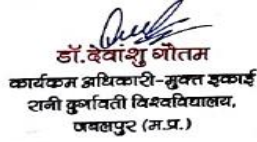 डॉ. देवांशु गौतम
कार्यकम अधिकारी-मुक्त इकाई
रानी दुर्गावती विश्वविद्यालय,
जबलपुर (म.प्र.)